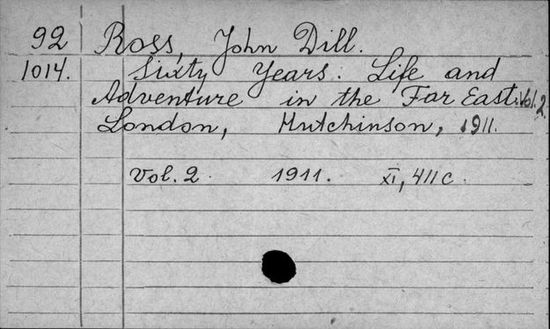 92 Ross, John Dill.
1014. Sixty Years: Life and
Adventure in the Far East. Vol. 2.
London, Hutchinson, 1911.
Vol. 2. 1911. XI, 411 c.